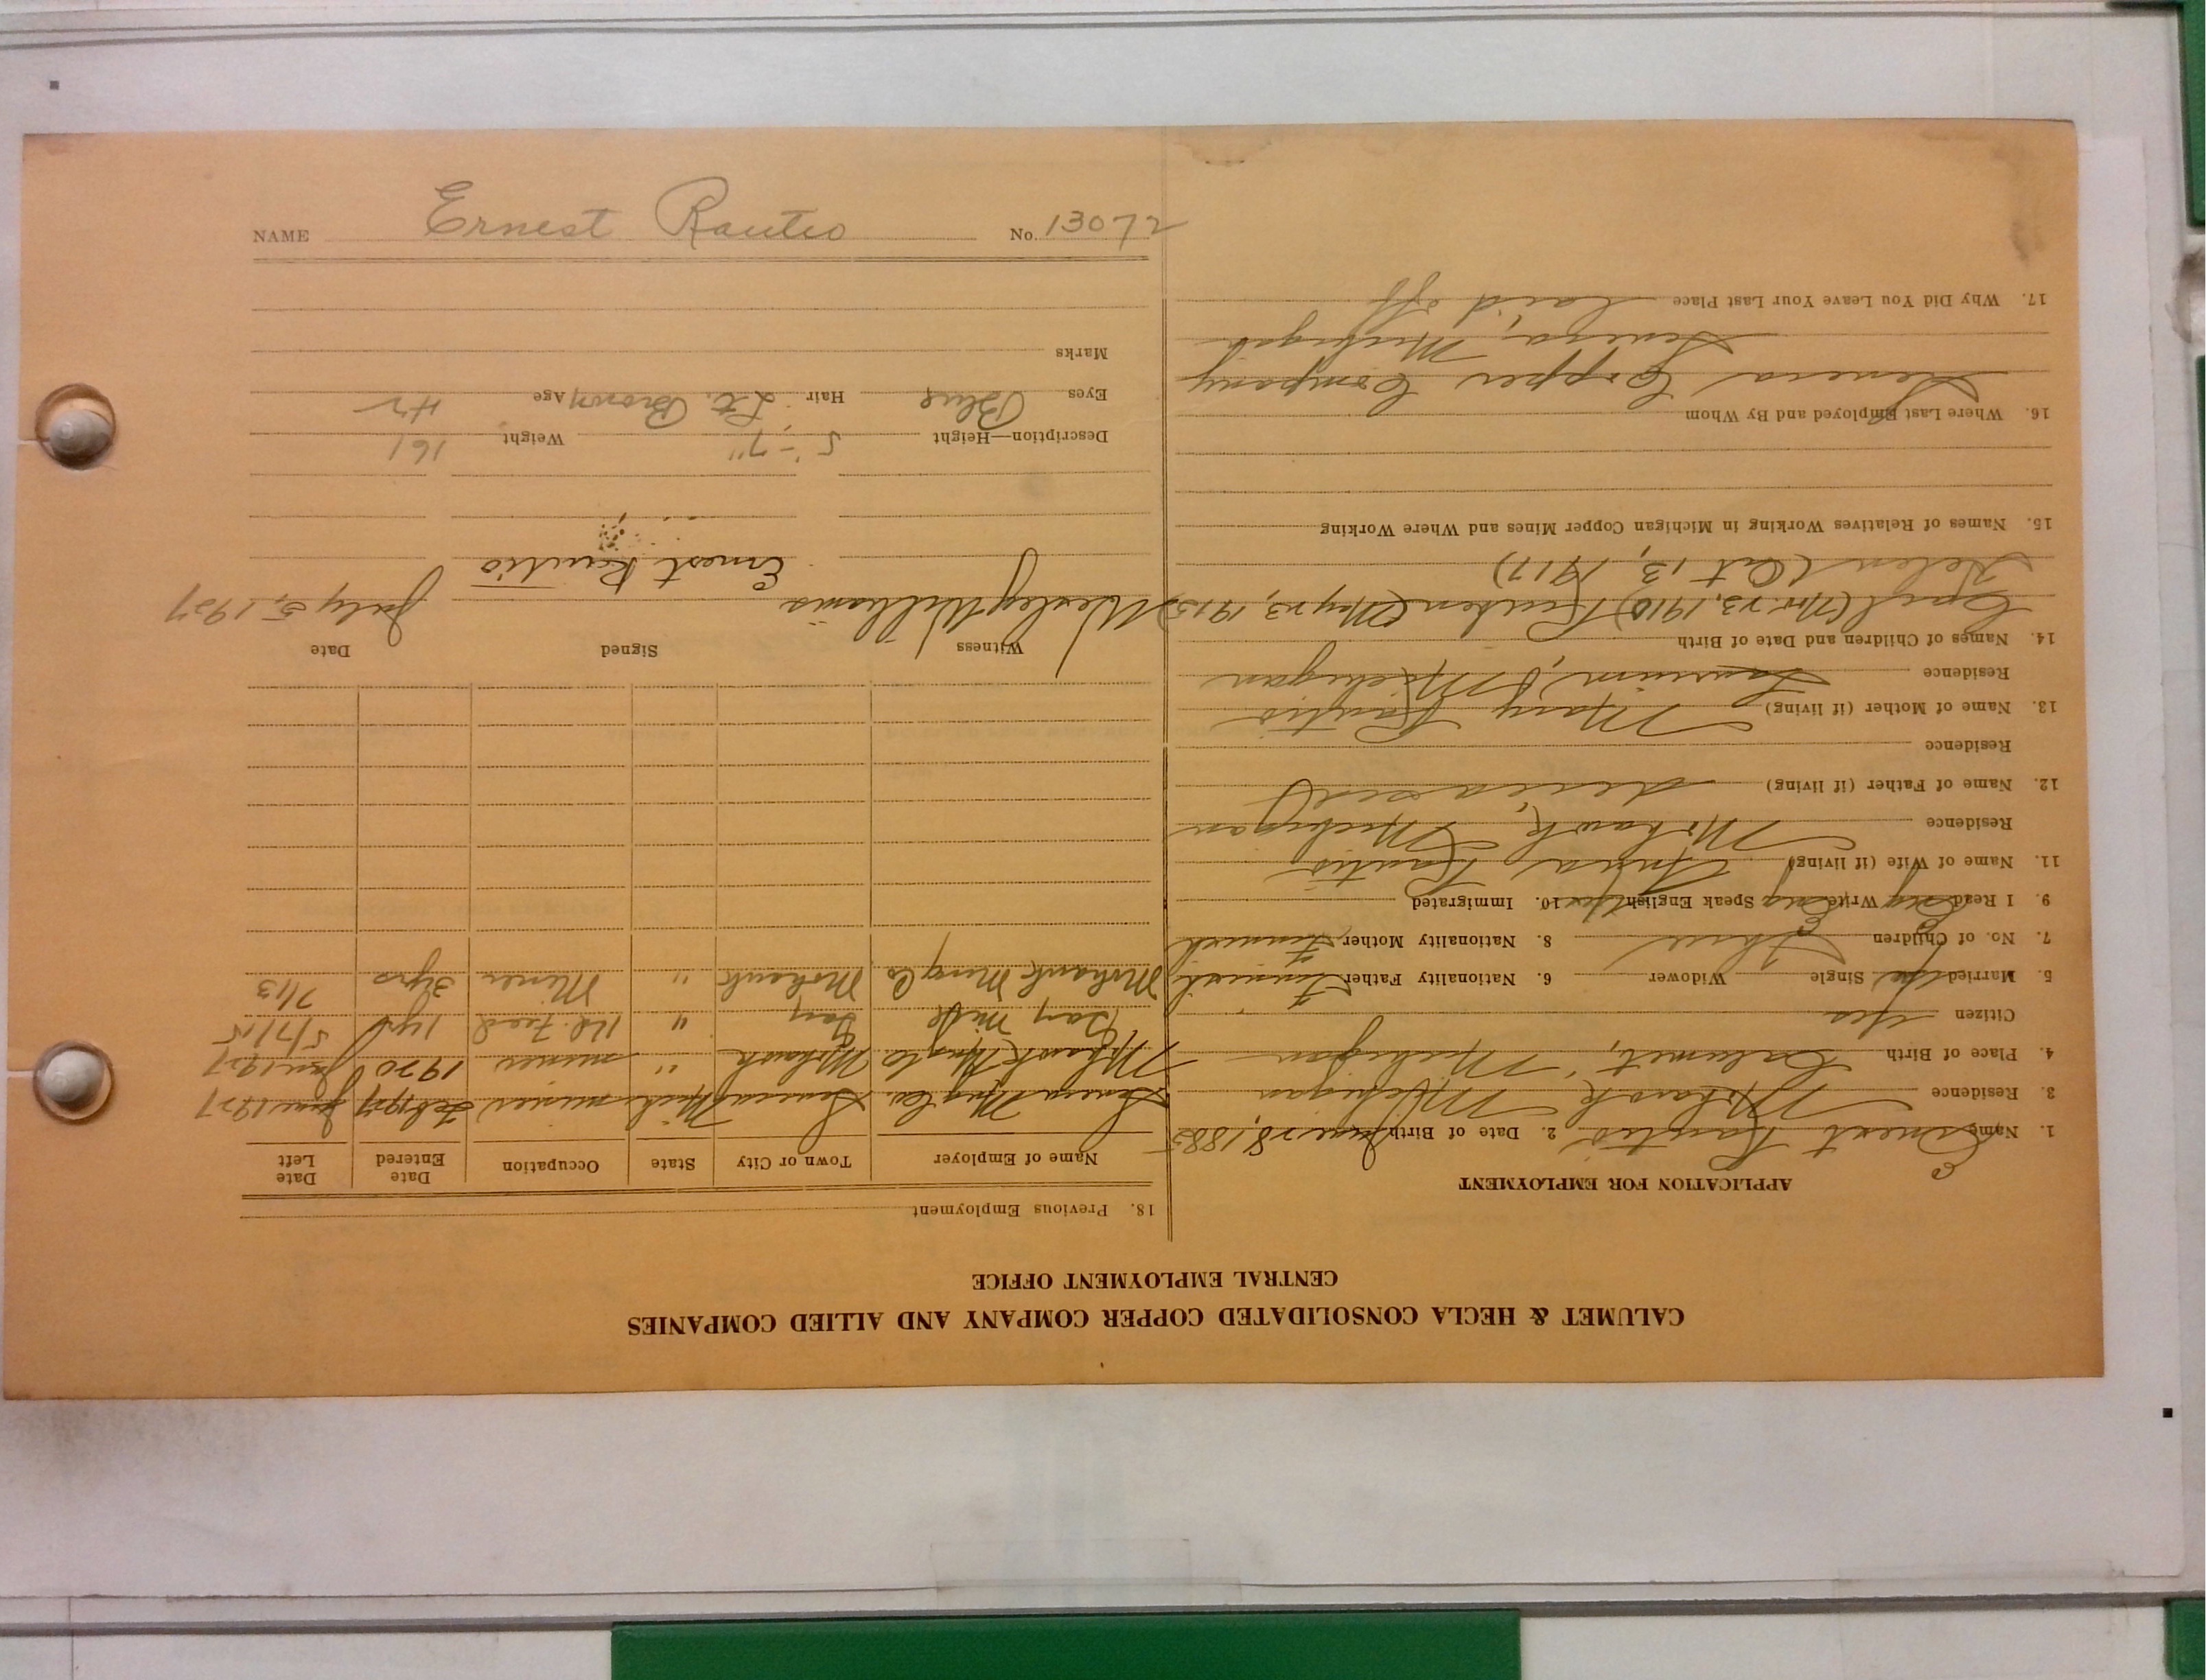 CALUMET & HECLA CONSOLIDATED COPPER COMPANY AND ALLIED COMPANIES
CENTRAL EMPLOYMENT OFFICE
APPLICATION FOR EMPLOYMENT
1. Name Ernest Rautio 2. Date of Birth June 28, 1885
3. Residence Mohawk Michigan
4. Place of Birth Calumet, Michigan
Citizen Yes
5. Married Single Widower 6. Nationality Father Finnish
7. No. of Children Three 8. Nationality Mother Finnish
9. I Read Eng Write Eng Speak English 10. Immigrated
11. Name of Wife (if living) Anna Rautio
Residence Mohawk, Michigan
12. Name of Father (if living) deceased
Residence
13. Name of Mother (if living) Mary Rautio
Residence Laurium, Michigan
14. Names of Children and Date of Birth
(Nov. 23, 1910) Reuben (May 23, 1913)
Helen (Oct 13, 1917)
15. Names of Relatives Working in Michigan Copper Mines and Where Working
16. Where Last Employed and By Whom
Seneca Copper Company
Seneca, Michigan
17. Why Did You Leave Your Last Place laid off
18. Previous Employment
Name of Employer Town or City State Occupation Date Entered Date Left
Seneca Mng Co. Seneca Mich miner Feb 1927 June 1927
Mohawk Mng Co. Mohawk " miner 1920 Jan 1927
Mohawk Mining Co. Mohawk " Miner 3yrs 7/13
Witness Signed Date
Wesley Williams Ernest Rautio July 5, 1927
Description—Height 5'-7" Weight 161
Eyes Blue Hair Lt. Brown Age 42
Marks
NAME Ernest Rautio No. 13072